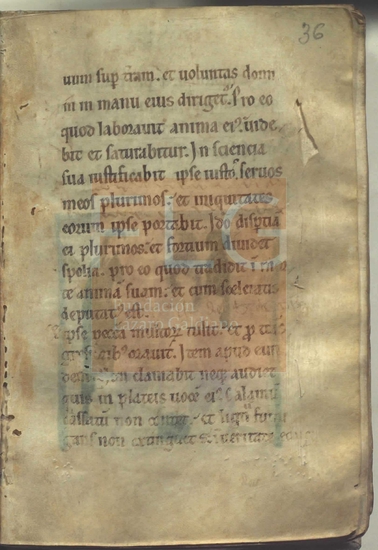 36
uum sup terram. et voluntas domi
ni in manu eius diriget. Pro eo
quod laboravit anima ei vide
bit et saturabitur. In sciencia
sua iustificabit ipse iusto servos
meos plurimos. et iniquitates
eorum ipse portabit. Ido disptia
ei plurimos. et fortium dividet
spolia. pro eo quod tradidit i mo
te animā suam. et cum sceleratis
deputat est.
ipse pecca multor tulit. et p
gib oravit. Item apud eun
clamabit neq audiet
in plateis voce ei. Calamū
cassatū non et liqū fumi
gans non extinguet. veritate
Fundación
Lázaro Galdiano